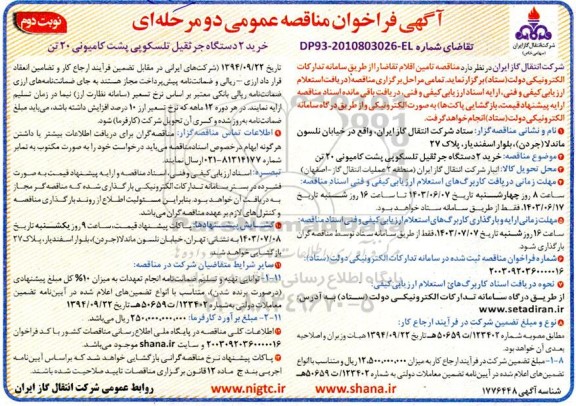 آگهی فراخوان مناقصه عمومی دو مرحله‌ای
نوبت دوم
شرکت انتقال گاز ایران
(سهامی خاص)
تقاضای شماره DP93-2010803026-EL
خرید ۲ دستگاه جرثقیل تلسکوپی پشت کامیونی ۲۰ تن
شرکت انتقال گاز ایران در نظر دارد مناقصه تامین اقلام تقاضا را از طریق سامانه تدارکات
الکترونیکی دولت (ستاد) برگزار نماید. تمامی مراحل برگزاری مناقصه (دریافت استعلام
ارزیابی کیفی و فنی، ارایه اسناد ارزیابی کیفی و فنی، دریافت باقی مانده اسناد مناقصه
ارایه پیشنهاد قیمت، بازگشایی پاکت‌ها) به صورت الکترونیکی و از طریق درگاه سامانه
تدارکات الکترونیکی دولت (ستاد) انجام خواهد گرفت.
نام و نشانی مناقصه‌گزار: ستاد شرکت انتقال گاز ایران، واقع در خیابان نلسون
ماندلا (جردن)، بلوار اسفندیار، پلاک ۲۷
موضوع مناقصه: خرید ۲ دستگاه جرثقیل تلسکوپی پشت کامیونی ۲۰ تن
محل تحویل کالا: انبار شرکت انتقال گاز ایران (منطقه ۲ عملیات انتقال گاز - اصفهان)
مهلت زمانی دریافت کاربرگ‌های استعلام ارزیابی کیفی و فنی اسناد مناقصه:
ساعت ۸ روز چهارشنبه تاریخ ۱۴۰۳/۰۶/۰۷ تا ساعت ۱۶ روز شنبه تاریخ
۱۴۰۳/۰۶/۱۷، فقط از طریق سامانه ستاد خواهد بود.
مهلت زمانی ارایه و بارگذاری کاربرگ‌های استعلام ارزیابی کیفی و فنی اسناد مناقصه:
ساعت ۱۶ روز شنبه تاریخ ۱۴۰۳/۰۷/۰۷، فقط از طریق سامانه ستاد توسط مناقصه‌گران
بارگذاری شود.
شماره فراخوان مناقصه ثبت شده در سامانه تدارکات الکترونیکی دولت (ستاد):
۲۰۰۳۰۹۲۰۳۶۰۰۰۰۱۶
نحوه دریافت اسناد کاربرگ‌های استعلام ارزیابی کیفی:
از طریق درگاه سامانه تدارکات الکترونیکی دولت (ستاد) به آدرس
www.setadiran.ir
نوع و مبلغ تضمین شرکت در فرآیند ارجاع کار:
مطابق مصوبه شماره ۱۲۳۴۰۲/ت۵۰۶۵۹هـ تاریخ ۱۳۹۴/۰۹/۲۲ هیات وزیران و اصلاحیه
بعدی آن خواهد بود.
۸-۱- مبلغ تضمین شرکت در فرآیند ارجاع کار به میزان ۱۲,۵۰۰,۰۰۰,۰۰۰ ریال و متناسب با انواع
تضمین‌های اعلام شده در آیین‌نامه تضمین معاملات دولتی به شماره ۱۲۳۴۰۲/ت ۵۰۶۵۹ هـ
تاریخ ۱۳۹۴/۰۹/۲۲ (شرکت‌های ایرانی در مقابل تضمین فرآیند ارجاع کار و تضامین انعقاد
قرار داد ارزی - ریالی و ضمانت‌نامه پیش‌پرداخت مجاز هستند به جای ضمانت‌نامه‌های ارزی
ضمانت‌نامه ریالی بانکی معتبر بر اساس نرخ تسعیر (سامانه نظارت ارز) نیما در زمان تسلیم
ارایه نمایند. در هر دوره ۱۲ ماهه که نرخ تسعیر ارز ۱۰ درصد افزایش داشته باشد، می‌باید مبلغ
ضمانت‌نامه به‌روز شده و کسری آن تحویل شرکت (کارفرما) شود.
اطلاعات تماس مناقصه‌گزار: مناقصه‌گران برای دریافت اطلاعات بیشتر یا داشتن
هرگونه ابهام درخصوص اسناد مناقصه می‌باید درخواست خود را به صورت مکتوب به نمابر
شماره ۸۱۳۱۴۱۷۷-۰۲۱ ارسال نمایند.
تبصره: اسناد ارزیابی کیفی و فنی، اسناد مناقصه و ارایه پیشنهاد قیمت به صورت
فشرده در بستر سامانه تدارکات الکترونیکی بارگذاری شده که مناقصه‌گر مجاز
به دریافت آن خواهد بود. بنابراین مسئولیت اطلاع از روند بارگذاری مناقصه
و کنترل‌های لازم بر عهده مناقصه‌گران می‌باشد.
پاکات پیشنهاد قیمت، ساعت ۹ روز یکشنبه تاریخ
۱۴۰۳/۰۷/۰۸ به نشانی: تهران، خیابان نلسون ماندلا (جردن)، بلوار اسفندیار، پلاک ۲۷
بازگشایی خواهد شد.
سایر شرایط متقاضیان شرکت در مناقصه:
۱۱-۱- توانایی تهیه و تسلیم ضمانت‌نامه انجام تعهدات به میزان ۱۰% کل مبلغ پیشنهادی
(در صورت برنده شدن)، متناسب با انواع تضمین‌های اعلام شده در آیین‌نامه تضمین
معاملات دولتی به شماره ۱۲۳۴۰۲/ت ۵۰۶۵۹هـ تاریخ ۱۳۹۴/۰۹/۲۲
۱۱-۲- مبلغ برآورد کارفرما: ۲۵۰,۰۰۰,۰۰۰,۰۰۰ ریال می‌باشد.
اطلاعات کلی مناقصه در پایگاه ملی اطلاع‌رسانی مناقصات کشور با کد فراخوان
۲۰۰۳۰۹۲۰۳۶۰۰۰۰۱۶ و سایت www.shana.ir موجود می‌باشد.
پاکات پیشنهاد نرخ مناقصه گرانی بازگشایی خواهد شد که بر اساس آیین‌نامه
اجرایی بند ج ماده ۱۲ قانون برگزاری مناقصات تایید شده باشند.
شناسه آگهی ۱۷۷۶۴۴۸
www.nigtc.ir
www.shana.ir
روابط عمومی شرکت انتقال گاز ایران